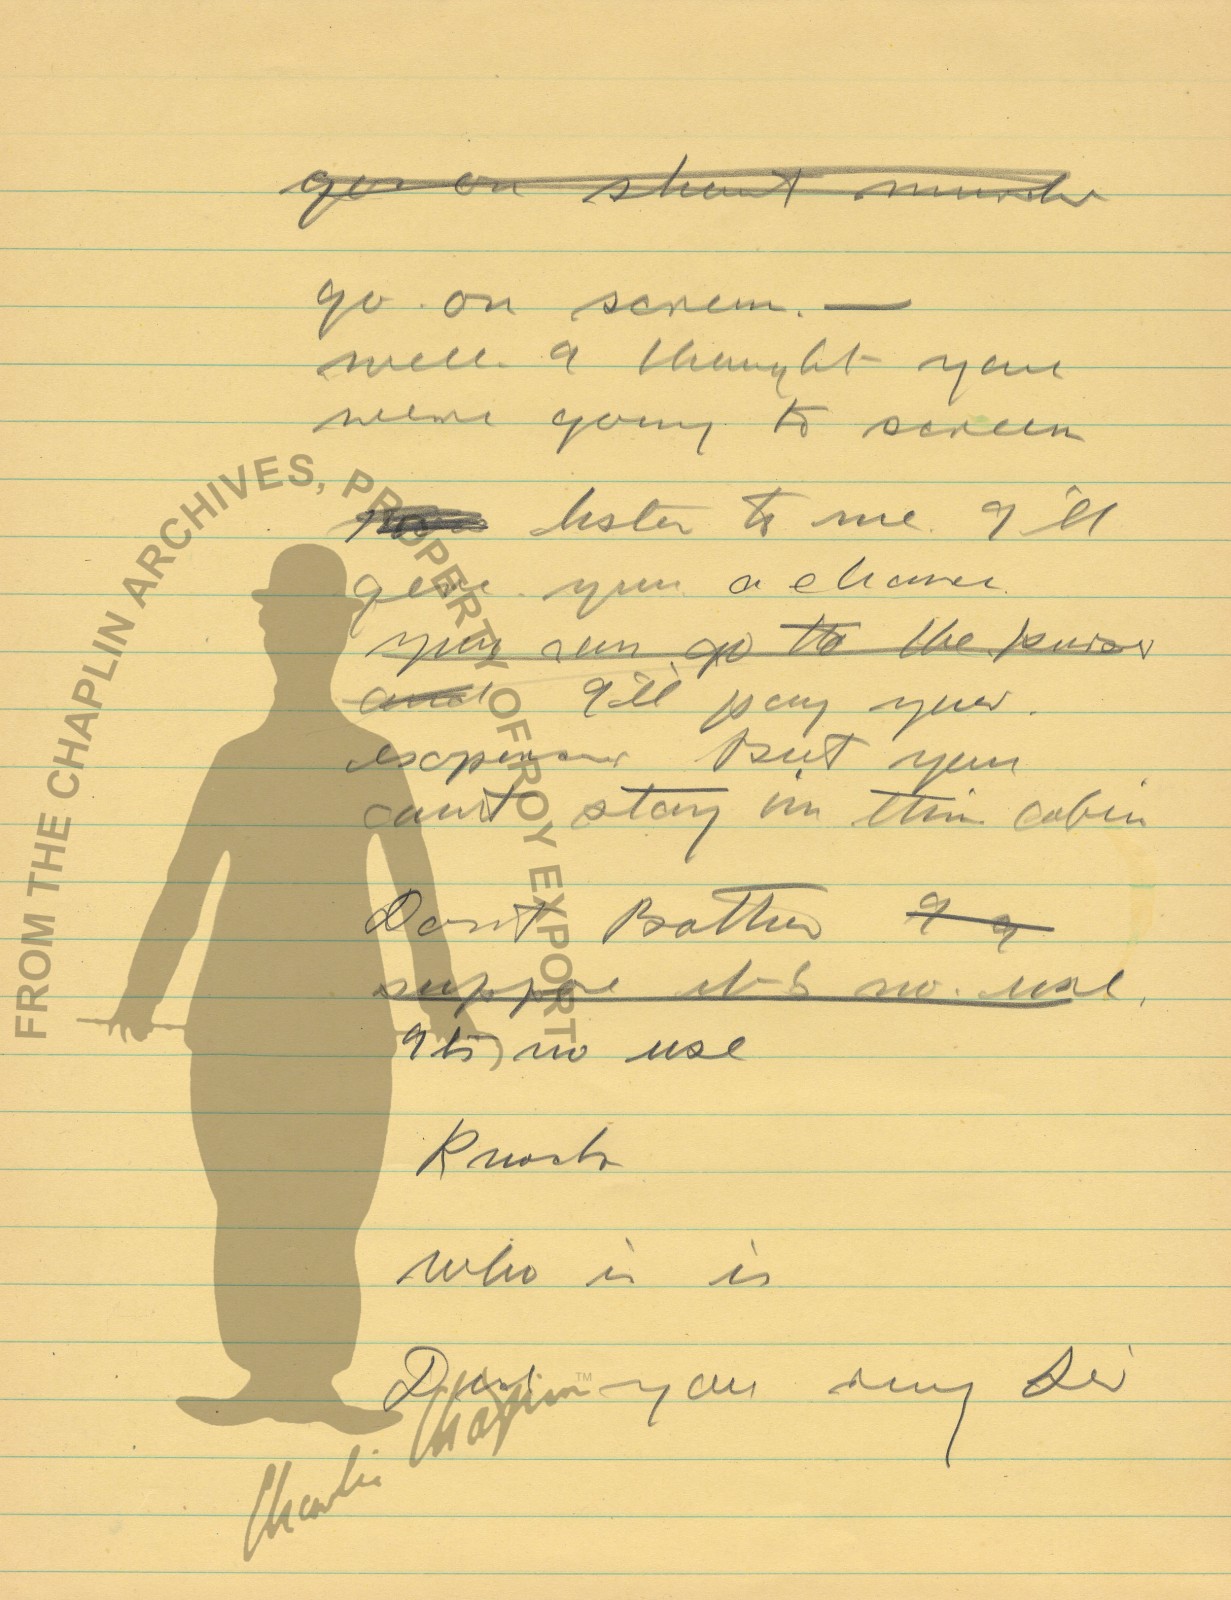 go on shout murder
go on scream. —
well. I thought you
were going to scream
listen to me I'll
give you a chance
you can go to the purser
and I'll pay your
expenses But you
can't stay in this cabin
Don't Bother I
suppose it's no use.
Its no use
Knock
who is is
Did you ring Sir
FROM THE CHAPLIN ARCHIVES, PROPERTY OF ROY EXPORT
Charlie Chaplin™